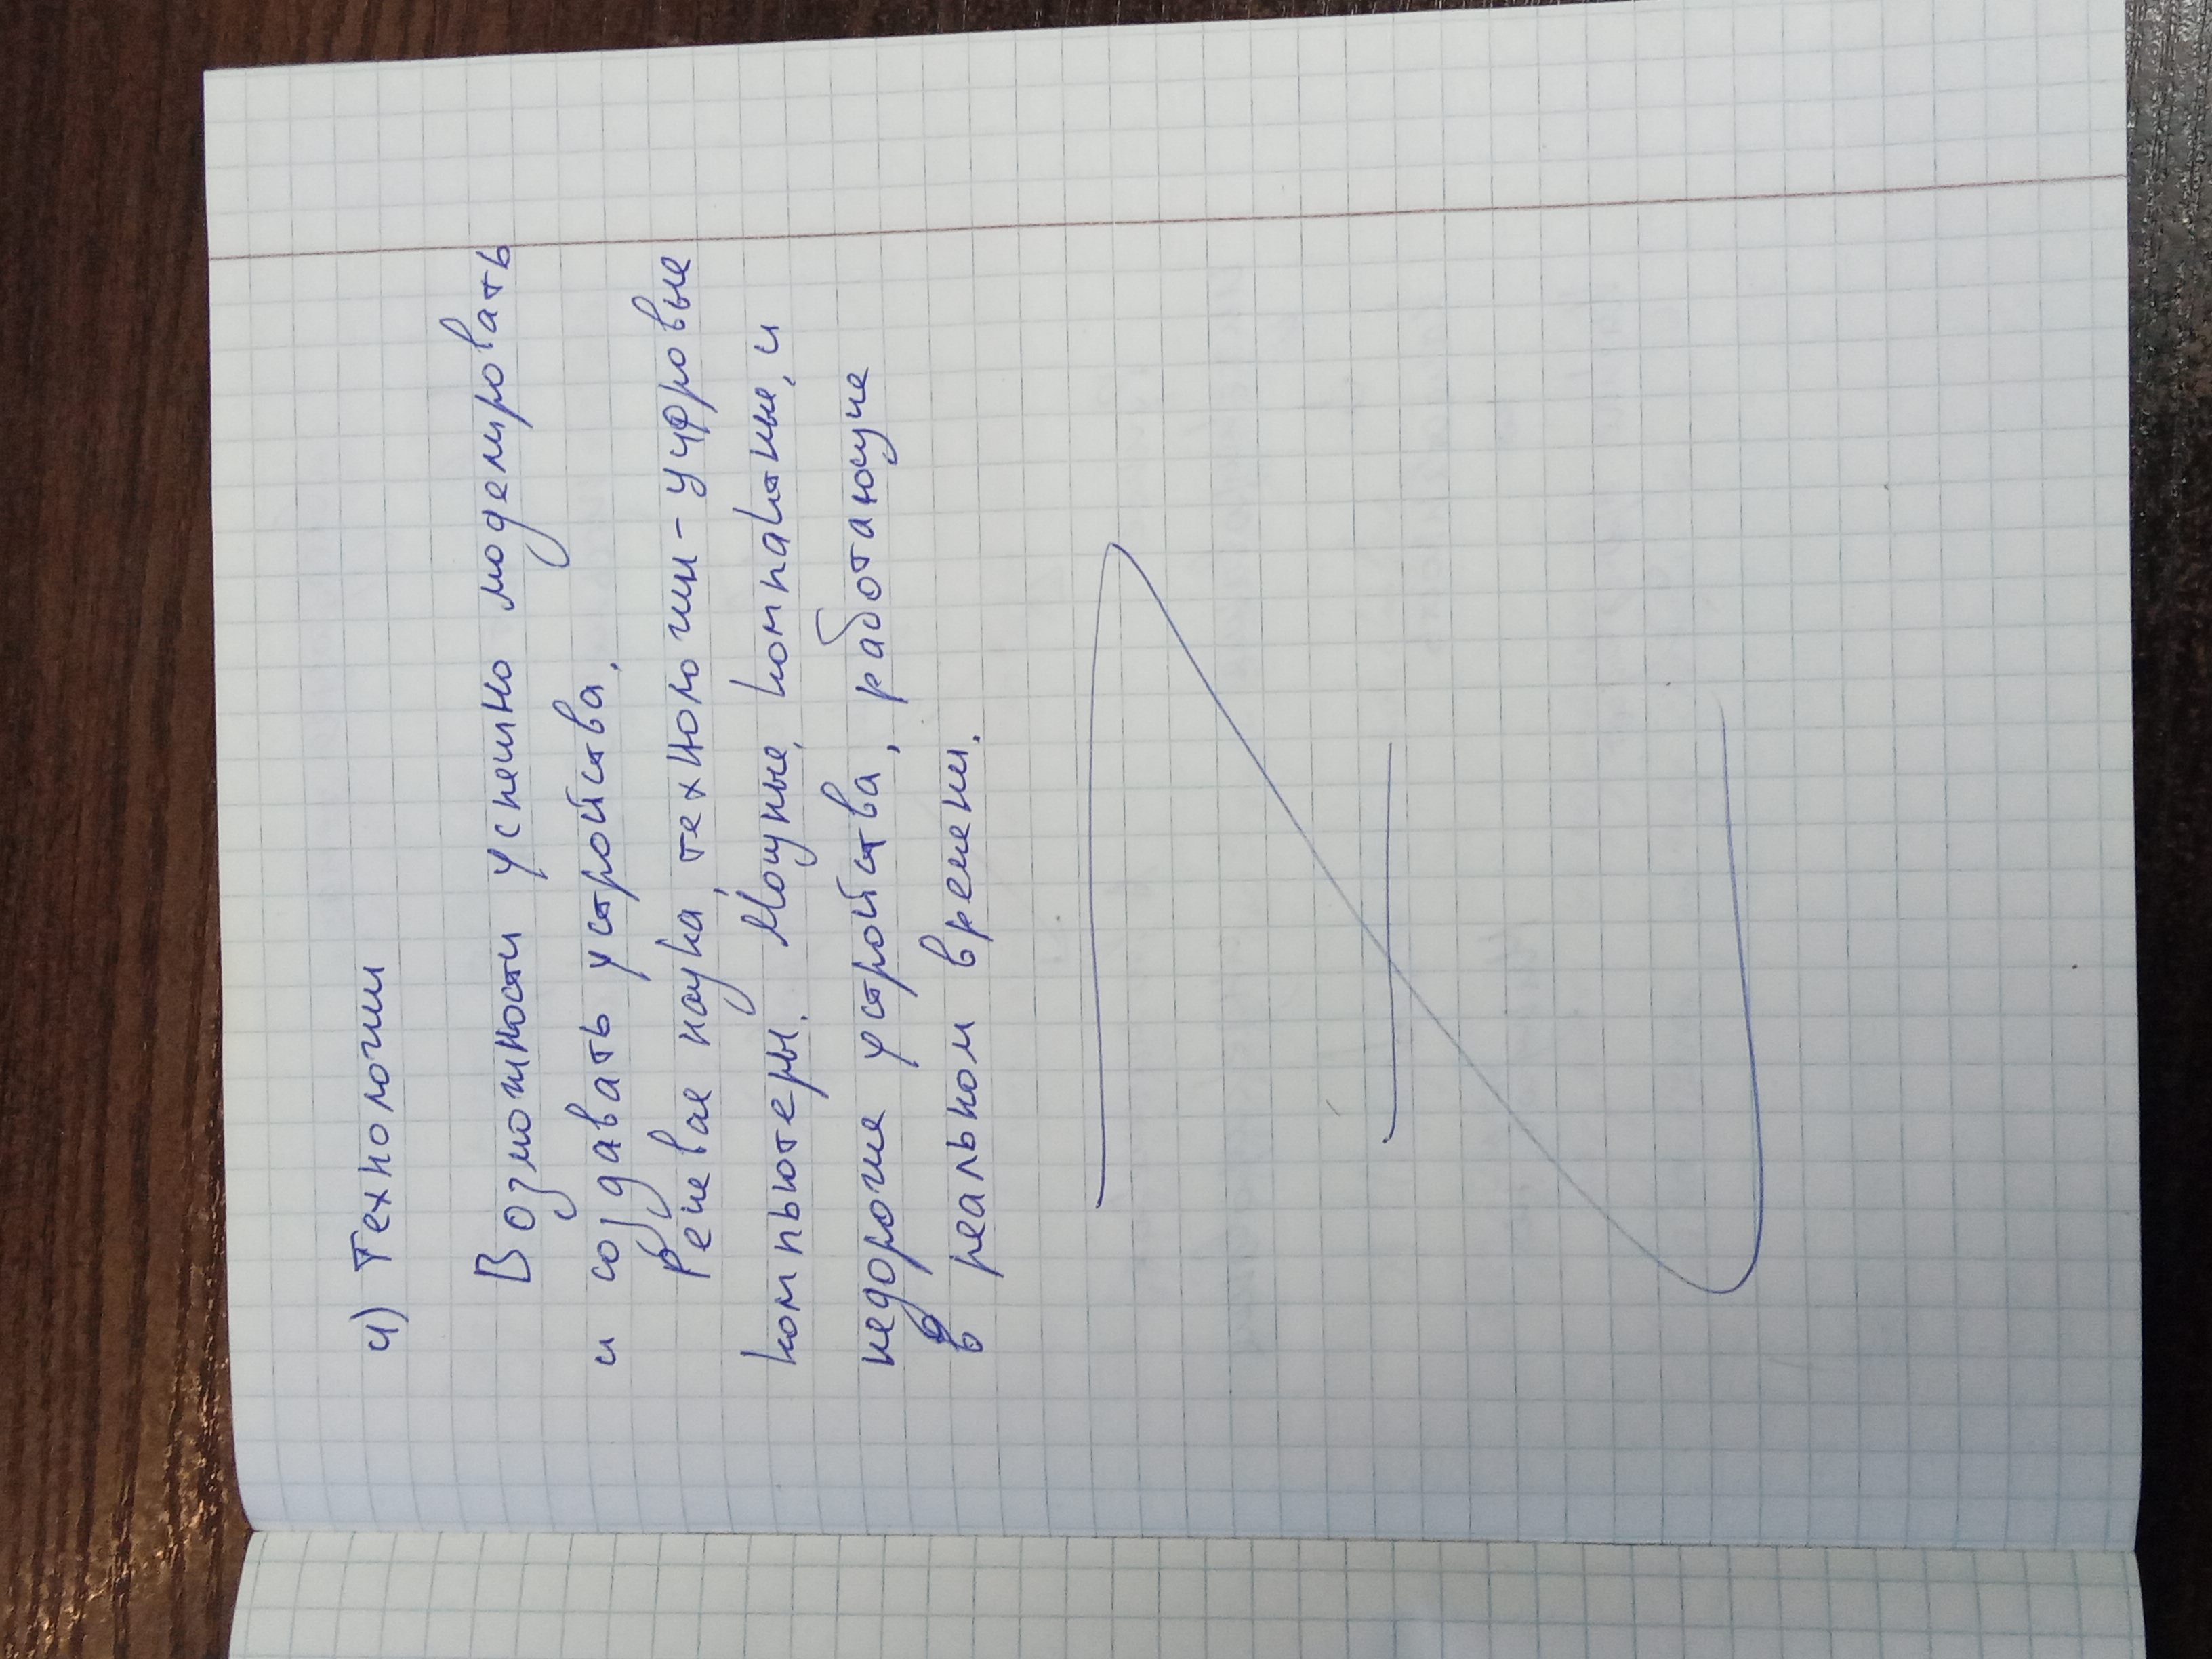 4) Технологии
Возможности успешно моделировать
и создавать устройства.
Речевае наука, технологии - цифровые
компьютеры. Мощные, компактные, и
недорогие устройства, работающие
в реальном времени.